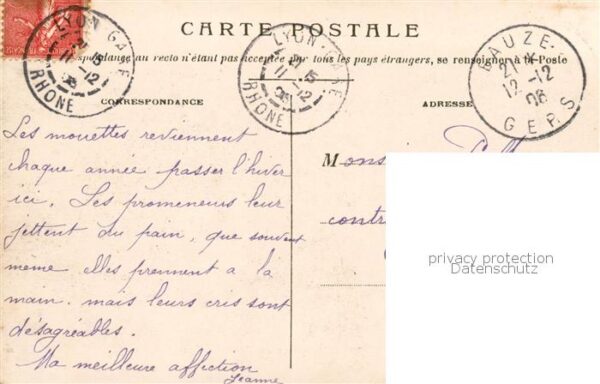 CARTE POSTALE
correspondance au recto n'étant pas acceptée par tous les pays étrangers, se renseigner à la Poste
LYON-GARE
11-12
06
RHONE
LYON-GARE
11-12
06
RHONE
BAUZE
12-12
06
GERS
CORRESPONDANCE
ADRESSE
Les mouettes reviennent
chaque année passer l'hiver
ici. Les promeneurs leur
jettent du pain, que souvent
meme elles prennent a la
main. mais leurs cris sont
désagréables.
Ma meilleure affection
Jeanne
Mons
contr
privacy protection
Datenschutz